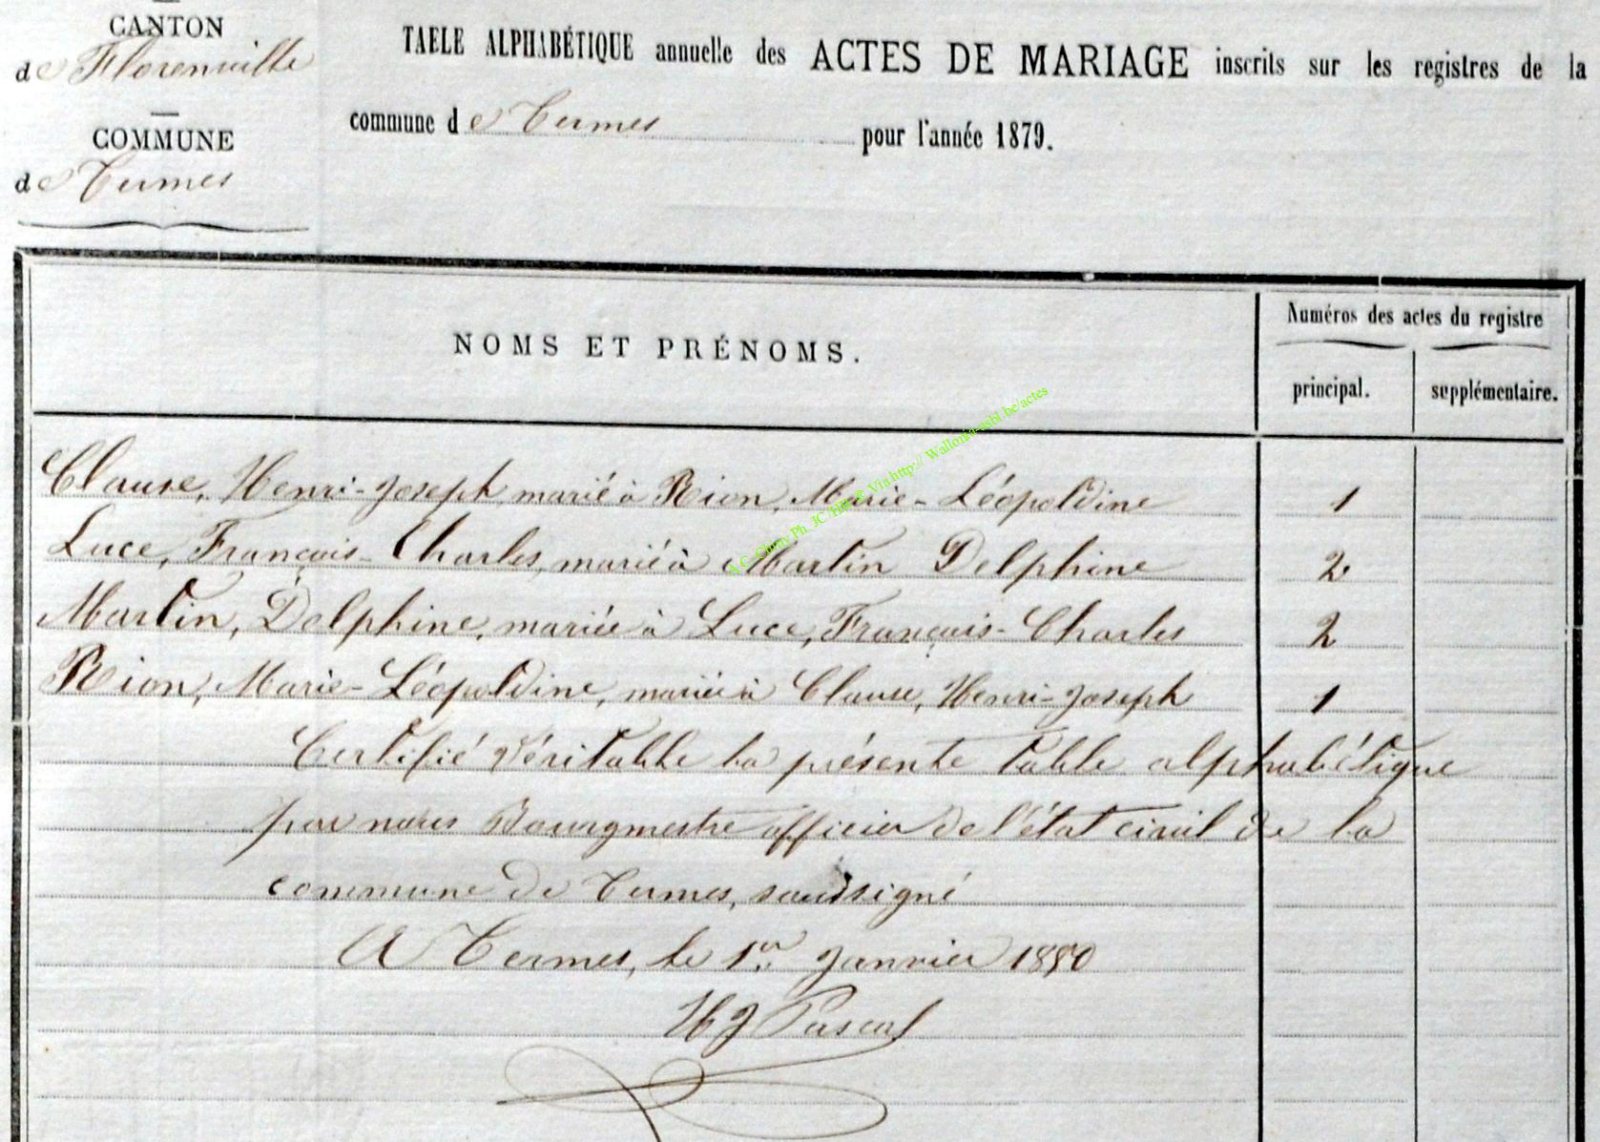 CANTON
de Florenville
COMMUNE
de Termes
TABLE ALPHABÉTIQUE annuelle des ACTES DE MARIAGE inscrits sur les registres de la
commune de Termes pour l'année 1879.
NOMS ET PRÉNOMS.
Numéros des actes du registre
principal. supplémentaire.
Clause, Henri-Joseph marié à Rion, Marie-Léopoldine 1
Luce, François-Charles, marié à Martin Delphine 2
Martin, Delphine, mariée à Luce, François-Charles 2
Rion, Marie-Léopoldine, mariée à Clause, Henri-Joseph 1
Certifié véritable la présente table alphabétique
par nous Bourgmestre officier de l'état civil de la
commune de Termes, soussigné
A Termes, le 1er Janvier 1880
HJ Pascal
http:// Wallonia-asbl.be/actes